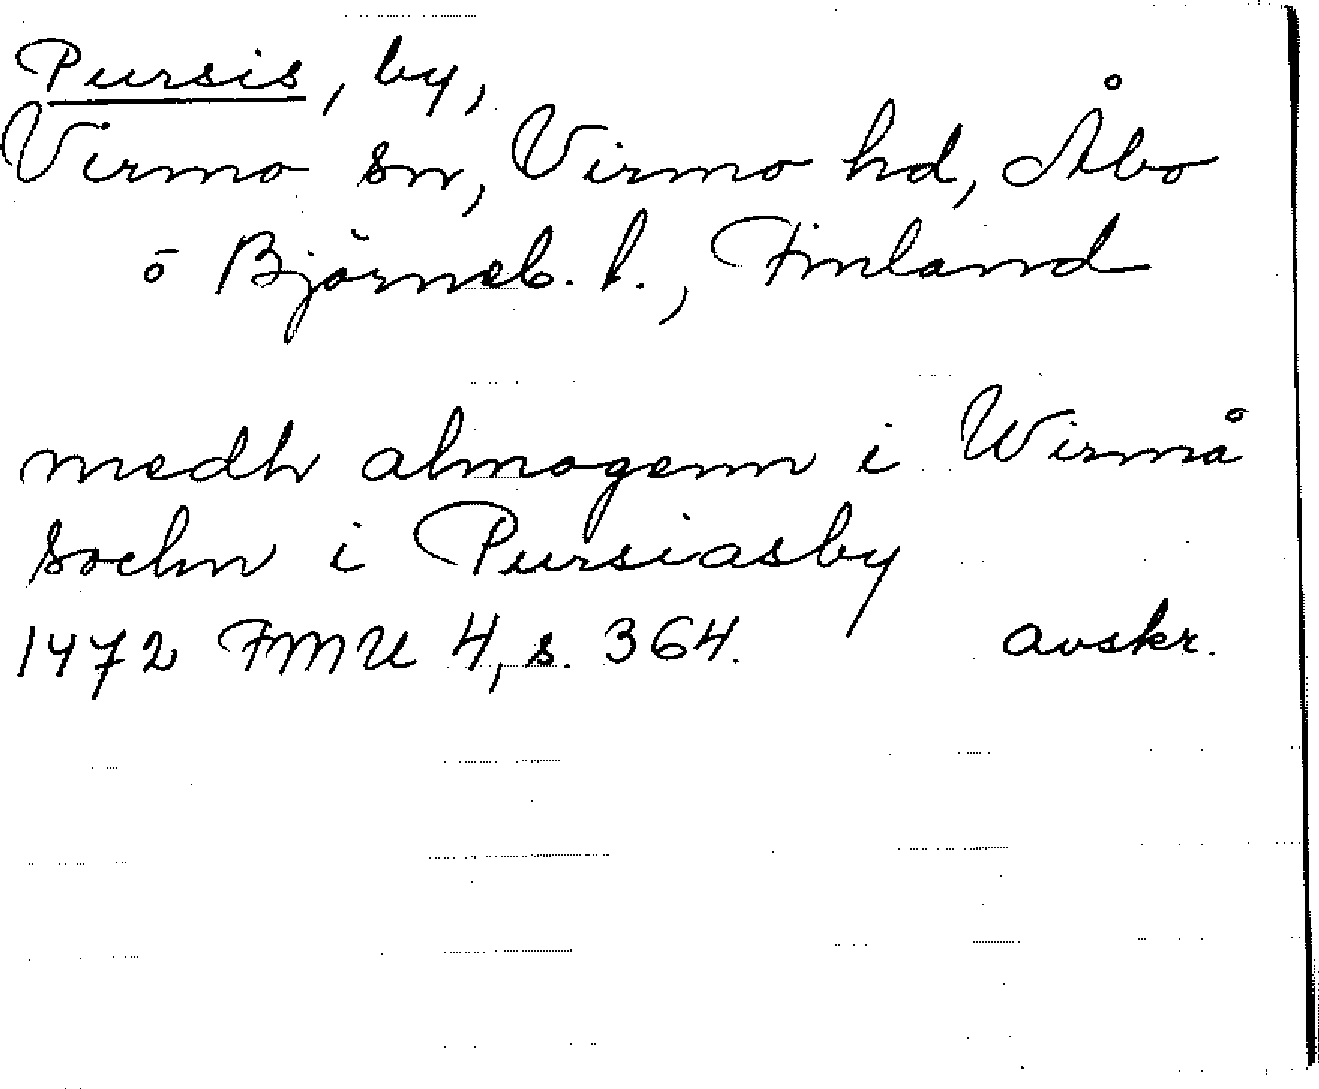 Pursis, by,
Virmo sn, Virmo hd, Åbo
o Björneb. l., Finland
medh almogenn i Wirmå
sochn i Pursiasby
1472 FMU 4, s. 364. avskr.